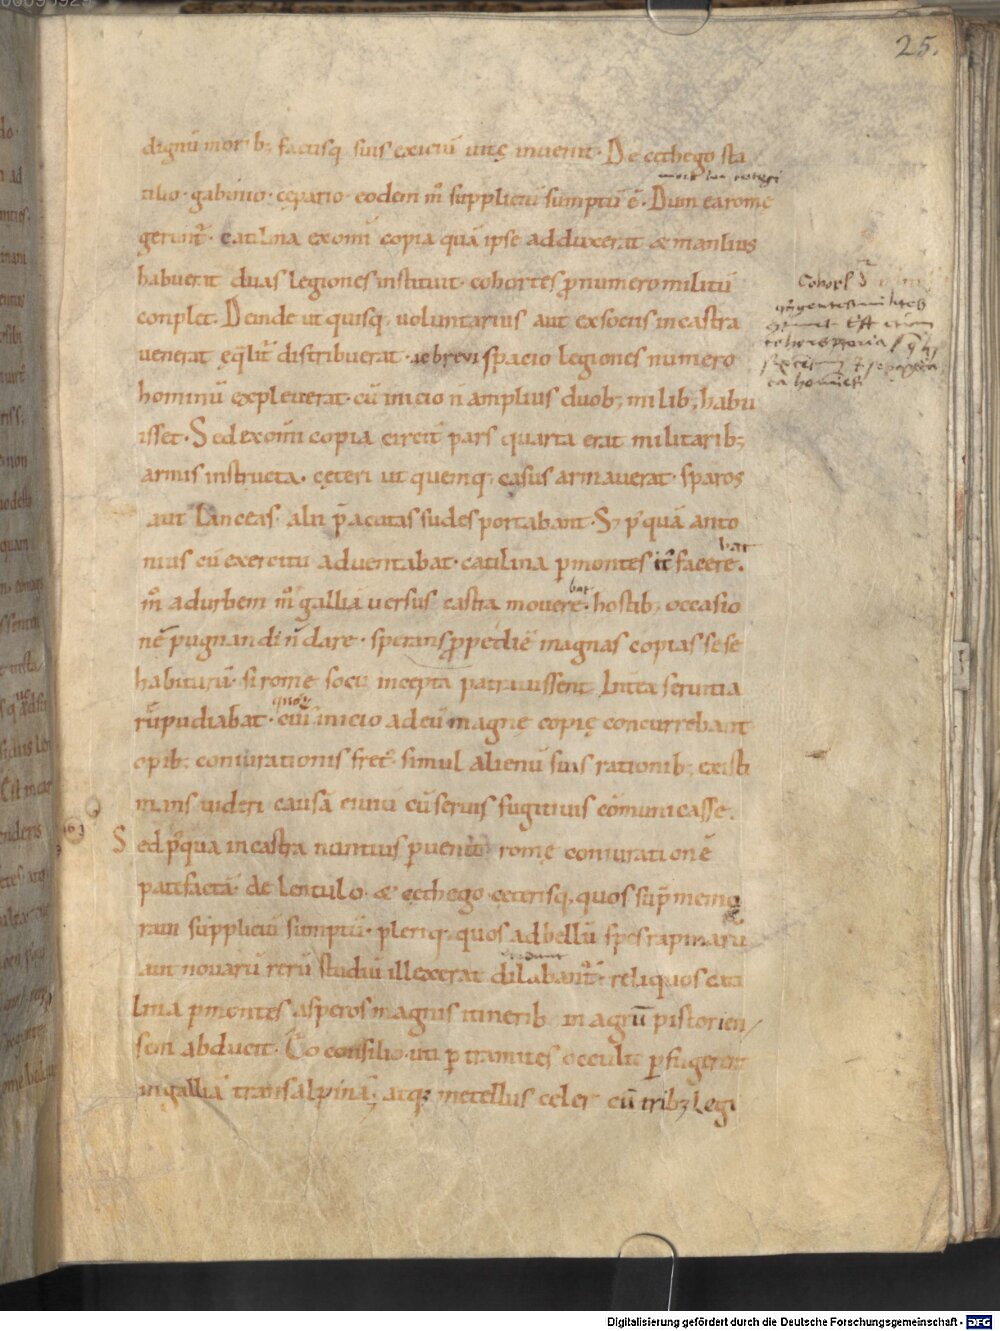 25.
dignũ morib; factisq; suis exiciũ uitę inuenit. De cethego sta
tilio. gabinio. cępario. eodem m̃ suppliciũ sumptũ ẽ. Dum ea romę
gerunt̃. catilina ex om̃i copia quã ipse adduxerat & manlius
habuerit duas legiones instituit. cohortes p numero militũ
conplet. Deinde ut quisq; uoluntarius aut ex sociis in castra
uenerat ęq̃lit̃ distribuerat. ac breui spacio legiones numero
hominũ expleuerat. cũ inicio ñ amplius duob; milib; habu
isset. Sed ex om̃i copia circit̃ pars quarta erat militarib;
armis instructa. cęteri ut quemq; casus armauerat. sparos
aut lanceas. alii p̃acutas sudes portabant. S; p̃quã anto
bat
nius cũ exercitu aduentabat. catilina p montes it̃ facere.
bat
m̃ ad urbem m̃ galliã uersus castra mouere. hostib; occasio
nẽ pugnandi ñ dare. sperans ppediẽ magnas copias sese
habiturũ. si romę socii incepta patrauissent Intea seruitia
rẽpudiabat. cui inicio ad eũ magnę copię concurrebant
opib; coniurationis fret̃. simul alienũ suis rationib; existi
mans uideri causã ciuiũ cũ seruis fugitiuis cõmunicasse.
Sed p̃qua in castra nuntius puenit romę coniurationẽ
patefactã. de lentulo. & cethego ceterisq; quos sup̃ memo
raui suppliciũ sumptũ. pleriq; quos ad bellũ spes rapinarũ
aut nouarũ rerũ studiũ illexerat dilabant̃. reliquos cati
lina p montes asperos magnis itinerib in agrũ pistorien
sem abducit. Eo consilio. uti p tramites occulte pfugeret
in galliã transalpinã; atq; metellus celer cũ trib; legi
Digitalisierung gefördert durch die Deutsche Forschungsgemeinschaft - DFG